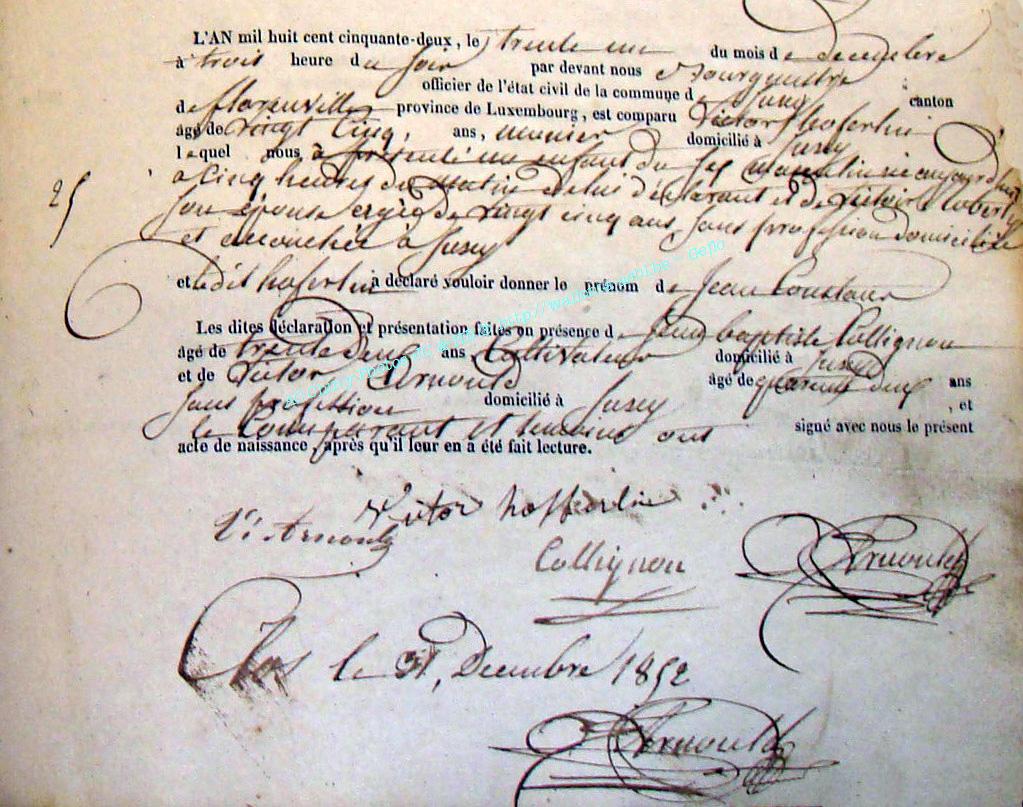 L'AN mil huit cent cinquante-deux, le trente un du mois de decembre
à trois heure du soir par devant nous
officier de l'état civil de la commune de Jusey canton
de florenville province de Luxembourg, est comparu Victor hoferlin
âgé de vingt cinq, ans, meunier domicilié à Jusey
lequel nous a présenté un enfant du sex masculin né aujourd'hui
25
a cinq heures du matin de lui déclarant et de victoire
son épouse agée de vingt cinq ans, sans profession domiciliée
et accouchée à Jusey
et ledit hoferlin a déclaré vouloir donner le prénom de Jean Constant
Les dites déclaration et présentation faites en présence de Jean baptiste Collignon
âgé de trente deux ans, Cultivateur domicilié à Jusey
et de Victor Arnould âgé de quarante deux ans
sans profession domicilié à Jusey, et
le Comparant et temoins ont signé avec nous le présent
acte de naissance, après qu'il leur en a été fait lecture.
Victor hofferlin
Vr Arnould
Collignon
Arnould
Clos le 31, Decembre 1852
Arnould